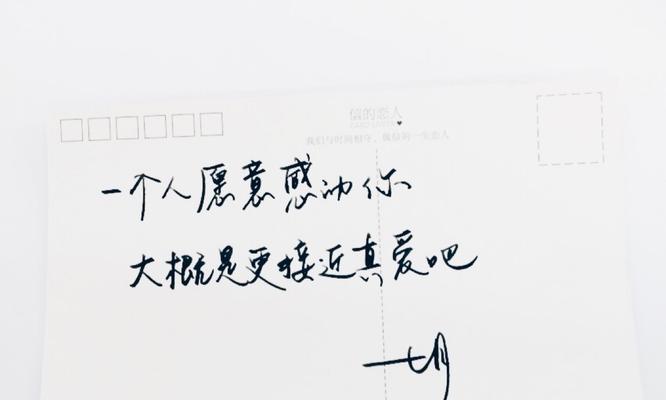 信的恋人
CARD LOVER
我们与时间相守,做信的一生恋人
一个人愿意感动你
大概是更接近真爱吧
—七月